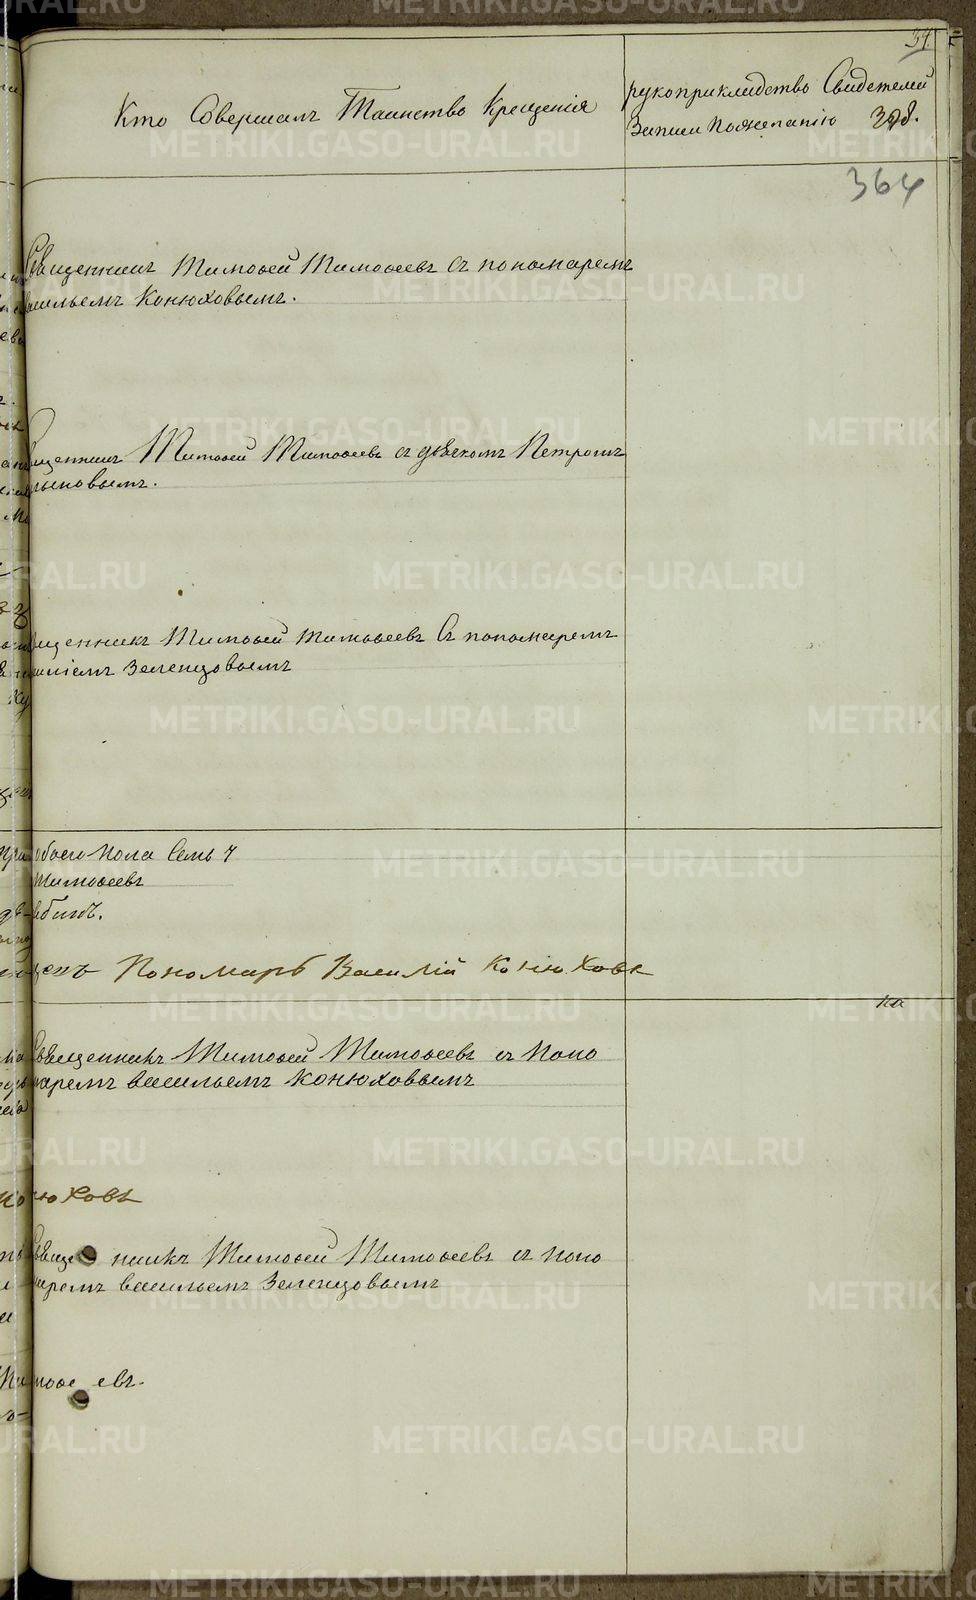 34
Кто Совершалъ Таинство Крещенія
рукоприкладство Свидетелей
Записи Пожеланію
364
Священникъ Тимофей Тимофеевъ съ пономаремъ
васильемъ Конюховымъ.
Священникъ Тимофей Тимофеевъ съ дьякомъ Петромъ
священникъ Тимофей тимофеевъ Съ пономаремъ
василіемъ Зеленцовымъ
обоего Пола Семь ч
Тимофеевъ
Пономарь Василій Конюховъ
на
Священникъ Тимофей Тимофеевъ съ Поно
маремъ васильемъ Конюховымъ
Конюховъ
Священникъ Тимофей Тимофеевъ съ Поно
маремъ васильемъ Зеленцовымъ
Тимофеевъ.
METRIKI.GASO-URAL.RU